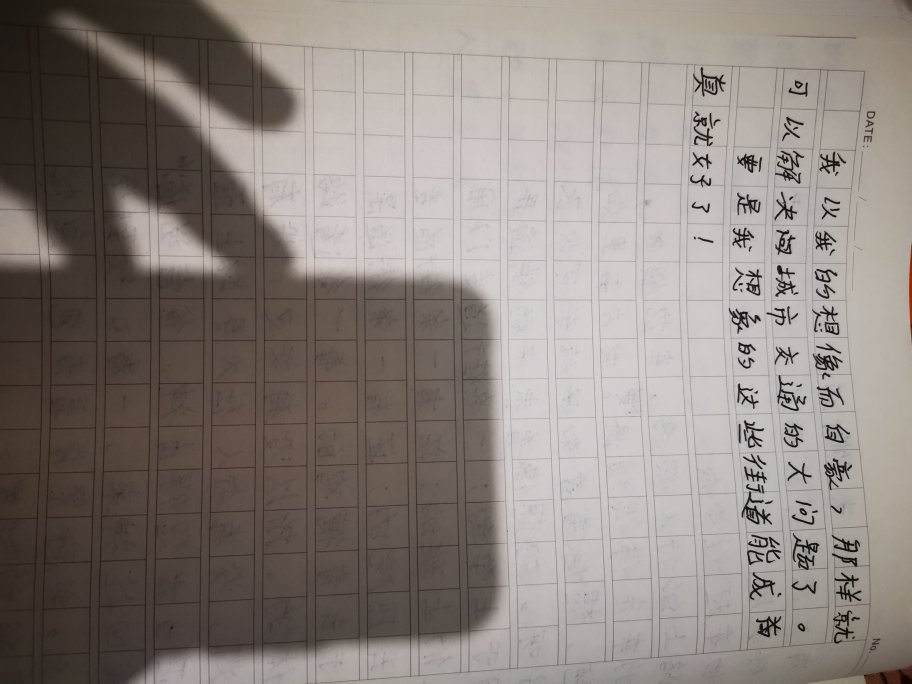 DATE: / /
No.
我以我的想像而自豪，那样就
可以解决向城市交通的大问题了。
要是我想象的这些街道能成
真就好了！